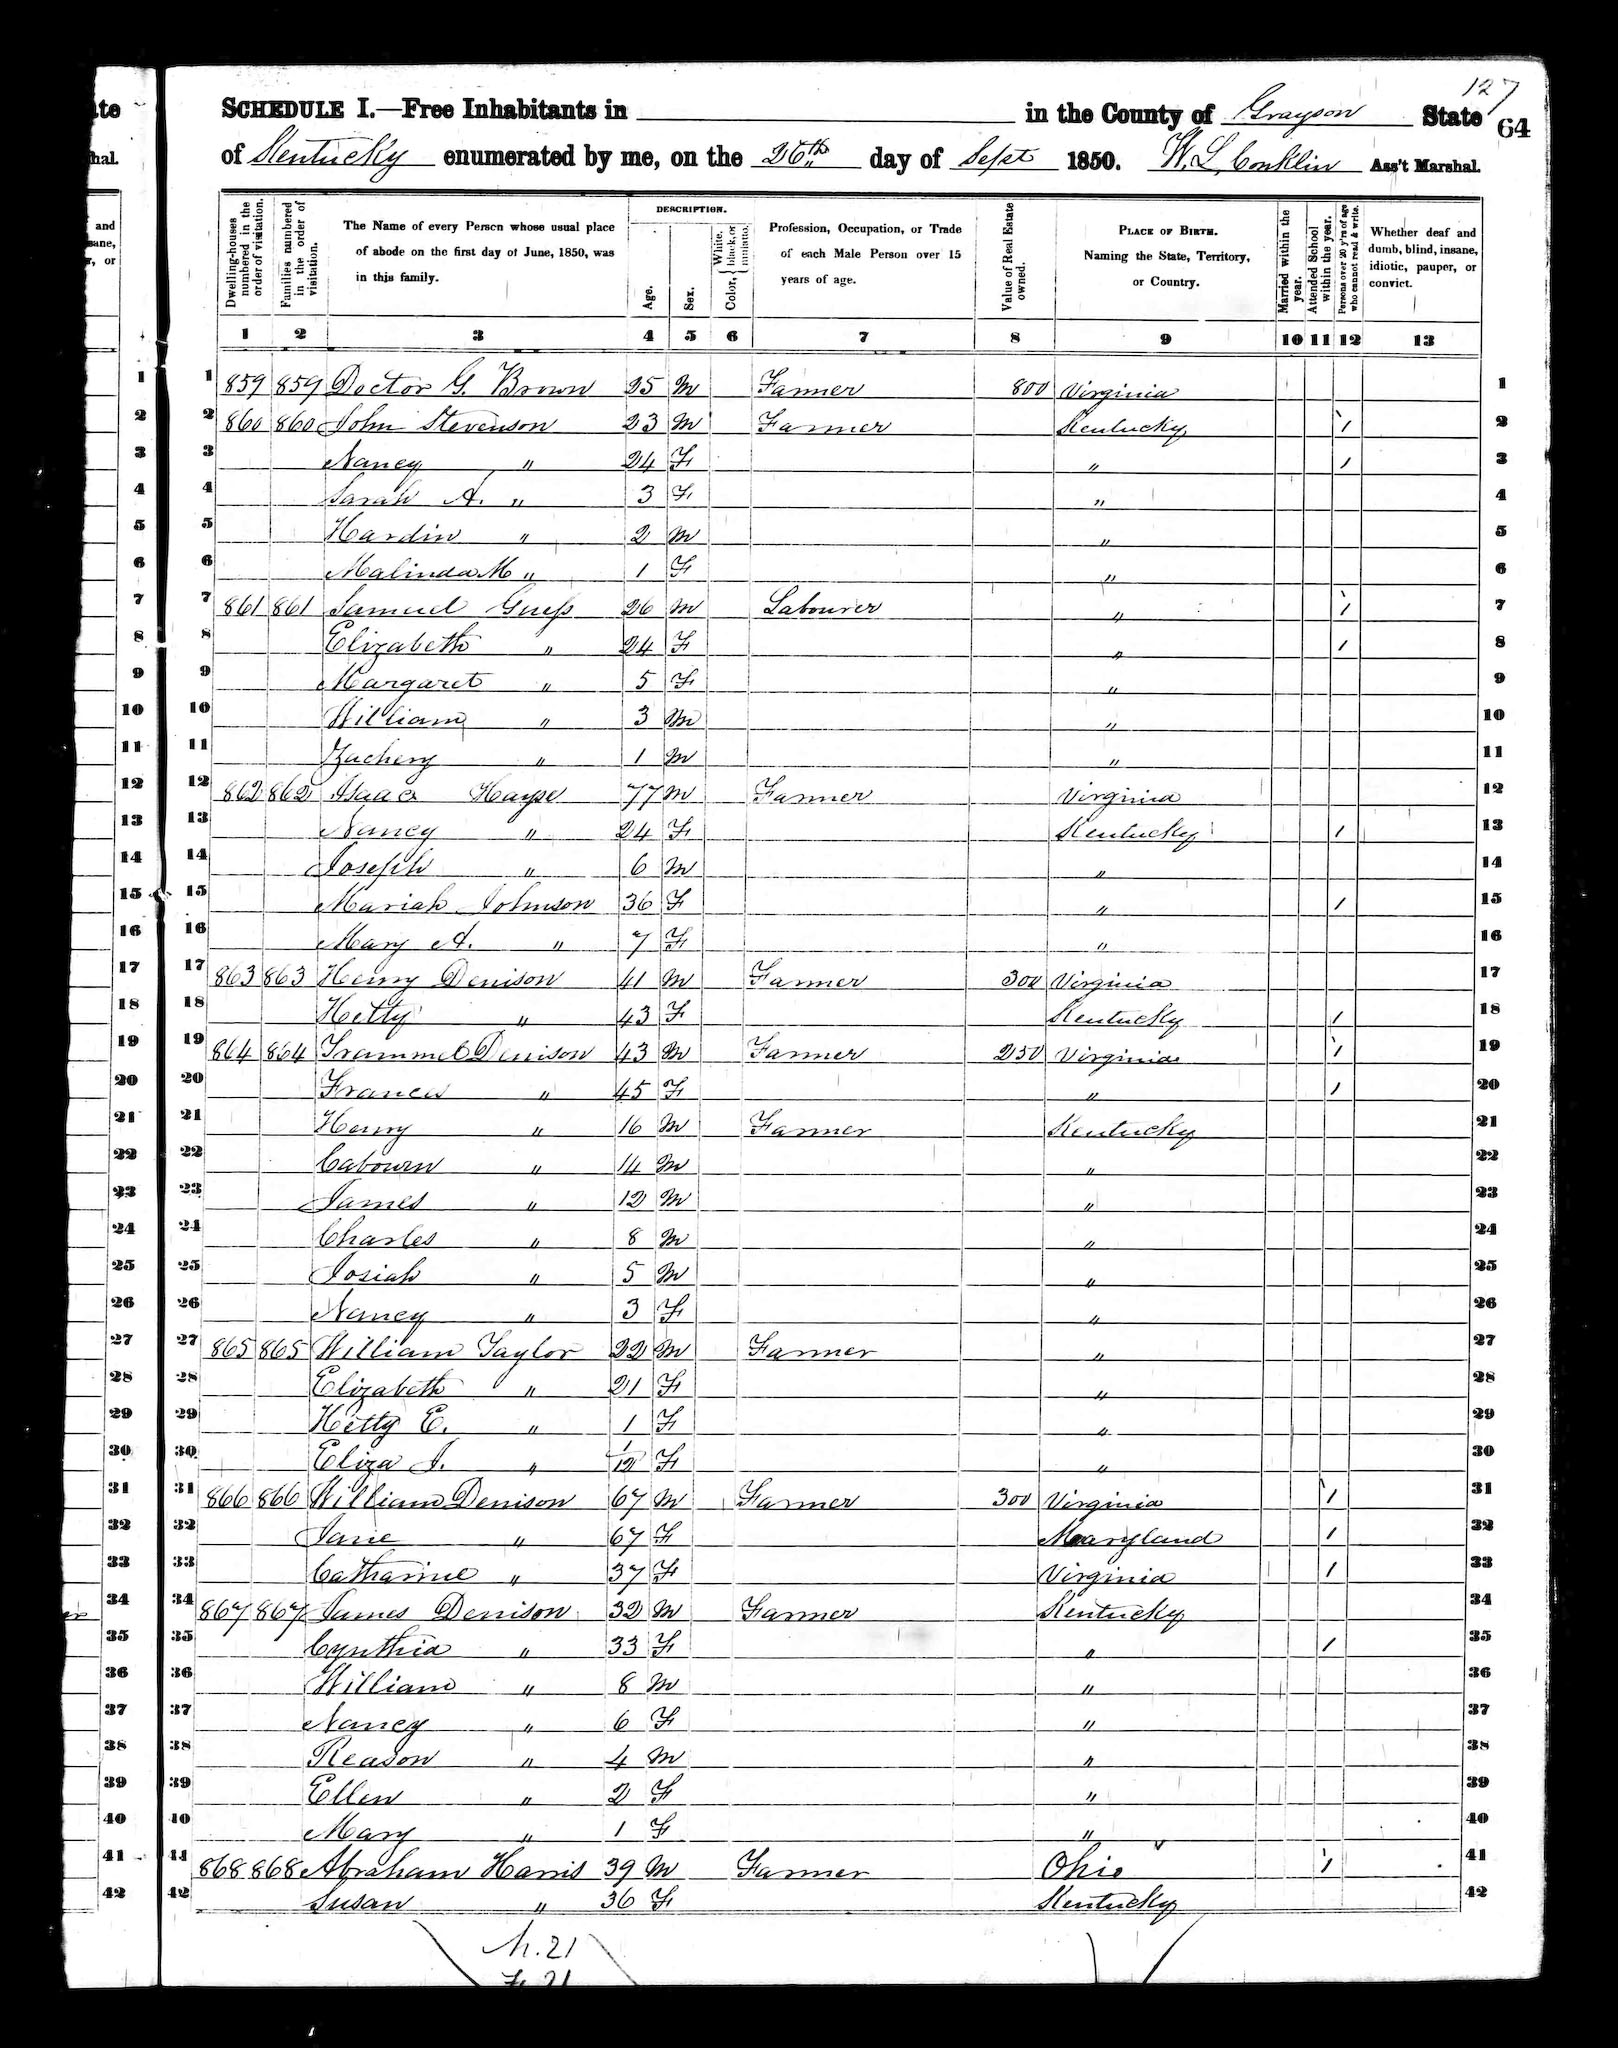 127
SCHEDULE I.—Free Inhabitants in in the County of Grayson State 64
of Kentucky enumerated by me, on the 26th day of Sept 1850. W. L. Conklin Ass't Marshal.
Dwelling-houses numbered in the order of visitation.
Families numbered in the order of visitation.
The Name of every Person whose usual place of abode on the first day of June, 1850, was in this family.
DESCRIPTION.
Age.
Sex.
Color, { White, black, or mulatto.
Profession, Occupation, or Trade of each Male Person over 15 years of age.
Value of Real Estate owned.
PLACE OF BIRTH. Naming the State, Territory, or Country.
Married within the year.
Attended School within the year.
Persons over 20 y'rs of age who cannot read & write.
Whether deaf and dumb, blind, insane, idiotic, pauper, or convict.
1 2 3 4 5 6 7 8 9 10 11 12 13
1 859 859 Doctor G. Brown 25 M Farmer 800 Virginia 1
2 860 860 John Stevenson 23 M Farmer Kentucky / 2
3 Nancy " 24 F " / 3
4 Sarah A. " 3 F " 4
5 Hardin " 2 M " 5
6 Malinda M " 1 F " 6
7 861 861 Samuel Guess 26 M Labourer " / 7
8 Elizabeth " 24 F " / 8
9 Margaret " 5 F " 9
10 William " 3 M " 10
11 Zachery " 1 M " 11
12 862 862 Isaac Hayse 77 M Farmer Virginia 12
13 Nancy " 24 F Kentucky / 13
14 Joseph " 6 M " 14
15 Mariah Johnson 36 F " / 15
16 Mary A. " 7 F " 16
17 863 863 Henry Denison 41 M Farmer 300 Virginia 17
18 Hetty " 43 F Kentucky / 18
19 864 864 Trammel Denison 43 M Farmer 250 Virginia / 19
20 Frances " 45 F " / 20
21 Henry " 16 M Farmer Kentucky 21
22 Cabourn " 14 M " 22
23 James " 12 M " 23
24 Charles " 8 M " 24
25 Josiah " 5 M " 25
26 Nancy " 3 F " 26
27 865 865 William Taylor 22 M Farmer " 27
28 Elizabeth " 21 F " 28
29 Hetty E. " 1 F " 29
30 Eliza J. " 1/12 F " 30
31 866 866 William Denison 67 M Farmer 300 Virginia / 31
32 Jane " 67 F Maryland / 32
33 Catharine " 37 F Virginia / 33
34 867 867 James Denison 32 M Farmer Kentucky 34
35 Cynthia " 33 F " / 35
36 William " 8 M " 36
37 Nancy " 6 F " 37
38 Reason " 4 M " 38
39 Ellen " 2 F " 39
40 Mary " 1 F " 40
41 868 868 Abraham Harris 39 M Farmer Ohio / 41
42 Susan " 36 F Kentucky 42
M. 21
F. 21